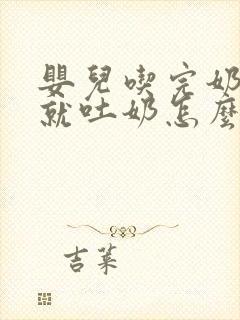 嬰兒喫完奶
就吐奶怎麼
吉萊